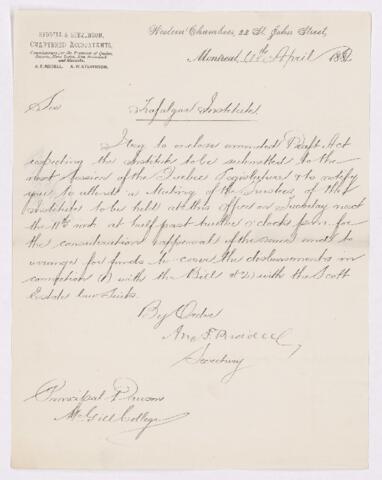 RIDDELL & STEVENSON,
CHARTERED ACCOUNTANTS,
Commissioners for the Provinces of Quebec,
Ontario, Nova Scotia, New Brunswick
and Manitoba.
A. F. RIDDELL. A. W. STEVENSON.
Western Chambers, 22 St. John Street,
Montreal, April 18
Sir
Trafalgar Institute
I beg to enclose amended Draft Act
respecting the institute to be submitted to the
next Session of the Quebec Legislature & to notify
you to attend a Meeting of the Trustees of the
Institute to be held at this office on Tuesday next
the inst at half past twelve o'clock p.m. for
the consideration & approval of the same and to
arrange for funds to cover the disbursements in
connection (1) with the Bill & (2) with the Scott
Estate law Suits.
By Order
A. F. Riddell
Secretary
Principal Dawson
McGill College